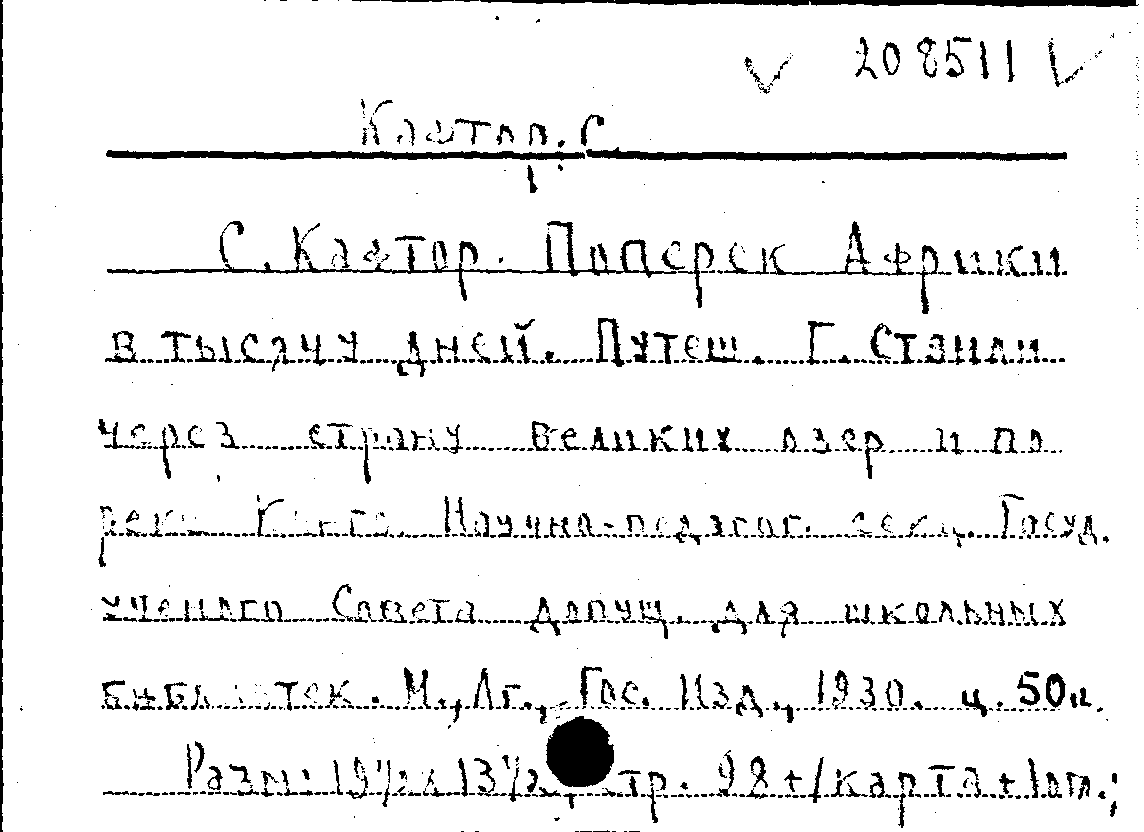 208511
Кафтор. С.
С. Кафтор. Поперек Африки
в тысячу дней. Путеш. Г. Стэнли
через страну великих озер и по
реке Конго. Научно-педагог. секц. Госуд.
ученого Совета допущ. для школьных
библиотек. М., Лг., Гос. Изд., 1930. ц. 50к.
Разм. 19½ x 13½, стр. 98 + 1 карта +